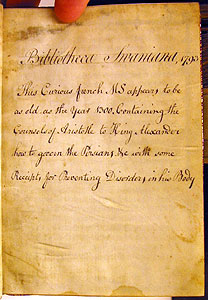 Bibliotheca Swaniana, 1790
This Curious french MS appears to be
as old as the Year 1300, Containing the
Counsels of Aristotle to King Alexander
how to govern the Persians &c with some
Receipts for Preventing Disorders in his Body